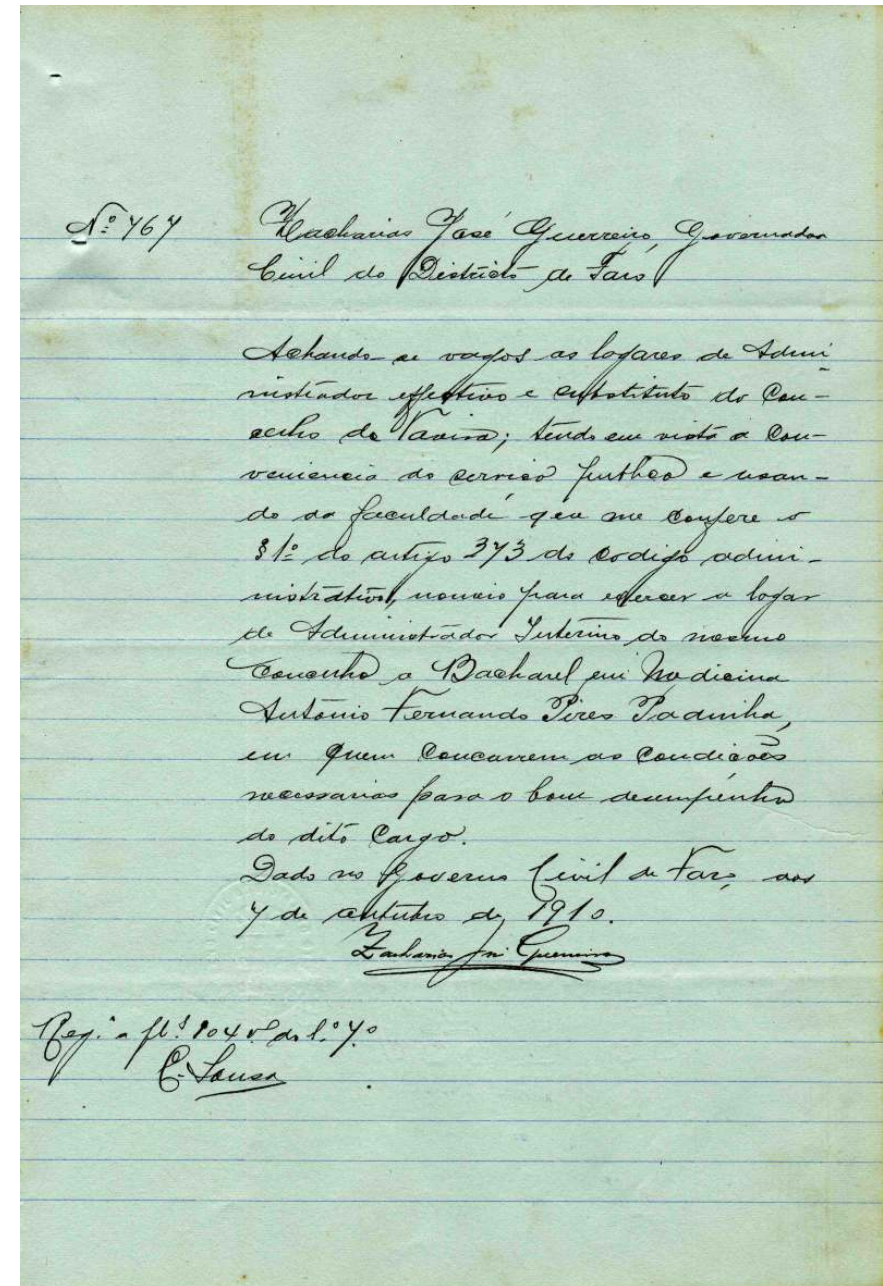 Nº 767
Zacharias José Guerreiro, Governador
Civil do Districto de Faro
Achando-se vagos os logares de Admi-
nistrador effectivo e substituto do Con-
celho de Tavira; tendo em vista a con-
veniencia do serviço publico e usan-
do da faculdade que me confere o
§ 1º do artigo 373 do codigo admi-
nistrativo, nomeio para exercer o logar
de Administrador Interino do mesmo
Concelho o Bacharel em Medicina
António Fernando Pires Padinha,
em quem concorrem as condições
necessarias para o bom desempenho
do dito cargo.
Dado no Governo Civil de Faro, aos
7 de outubro de 1910.
Zacharias José Guerreiro
Reg. a fl.s 104 vº do l.º 7.º
C. Sousa